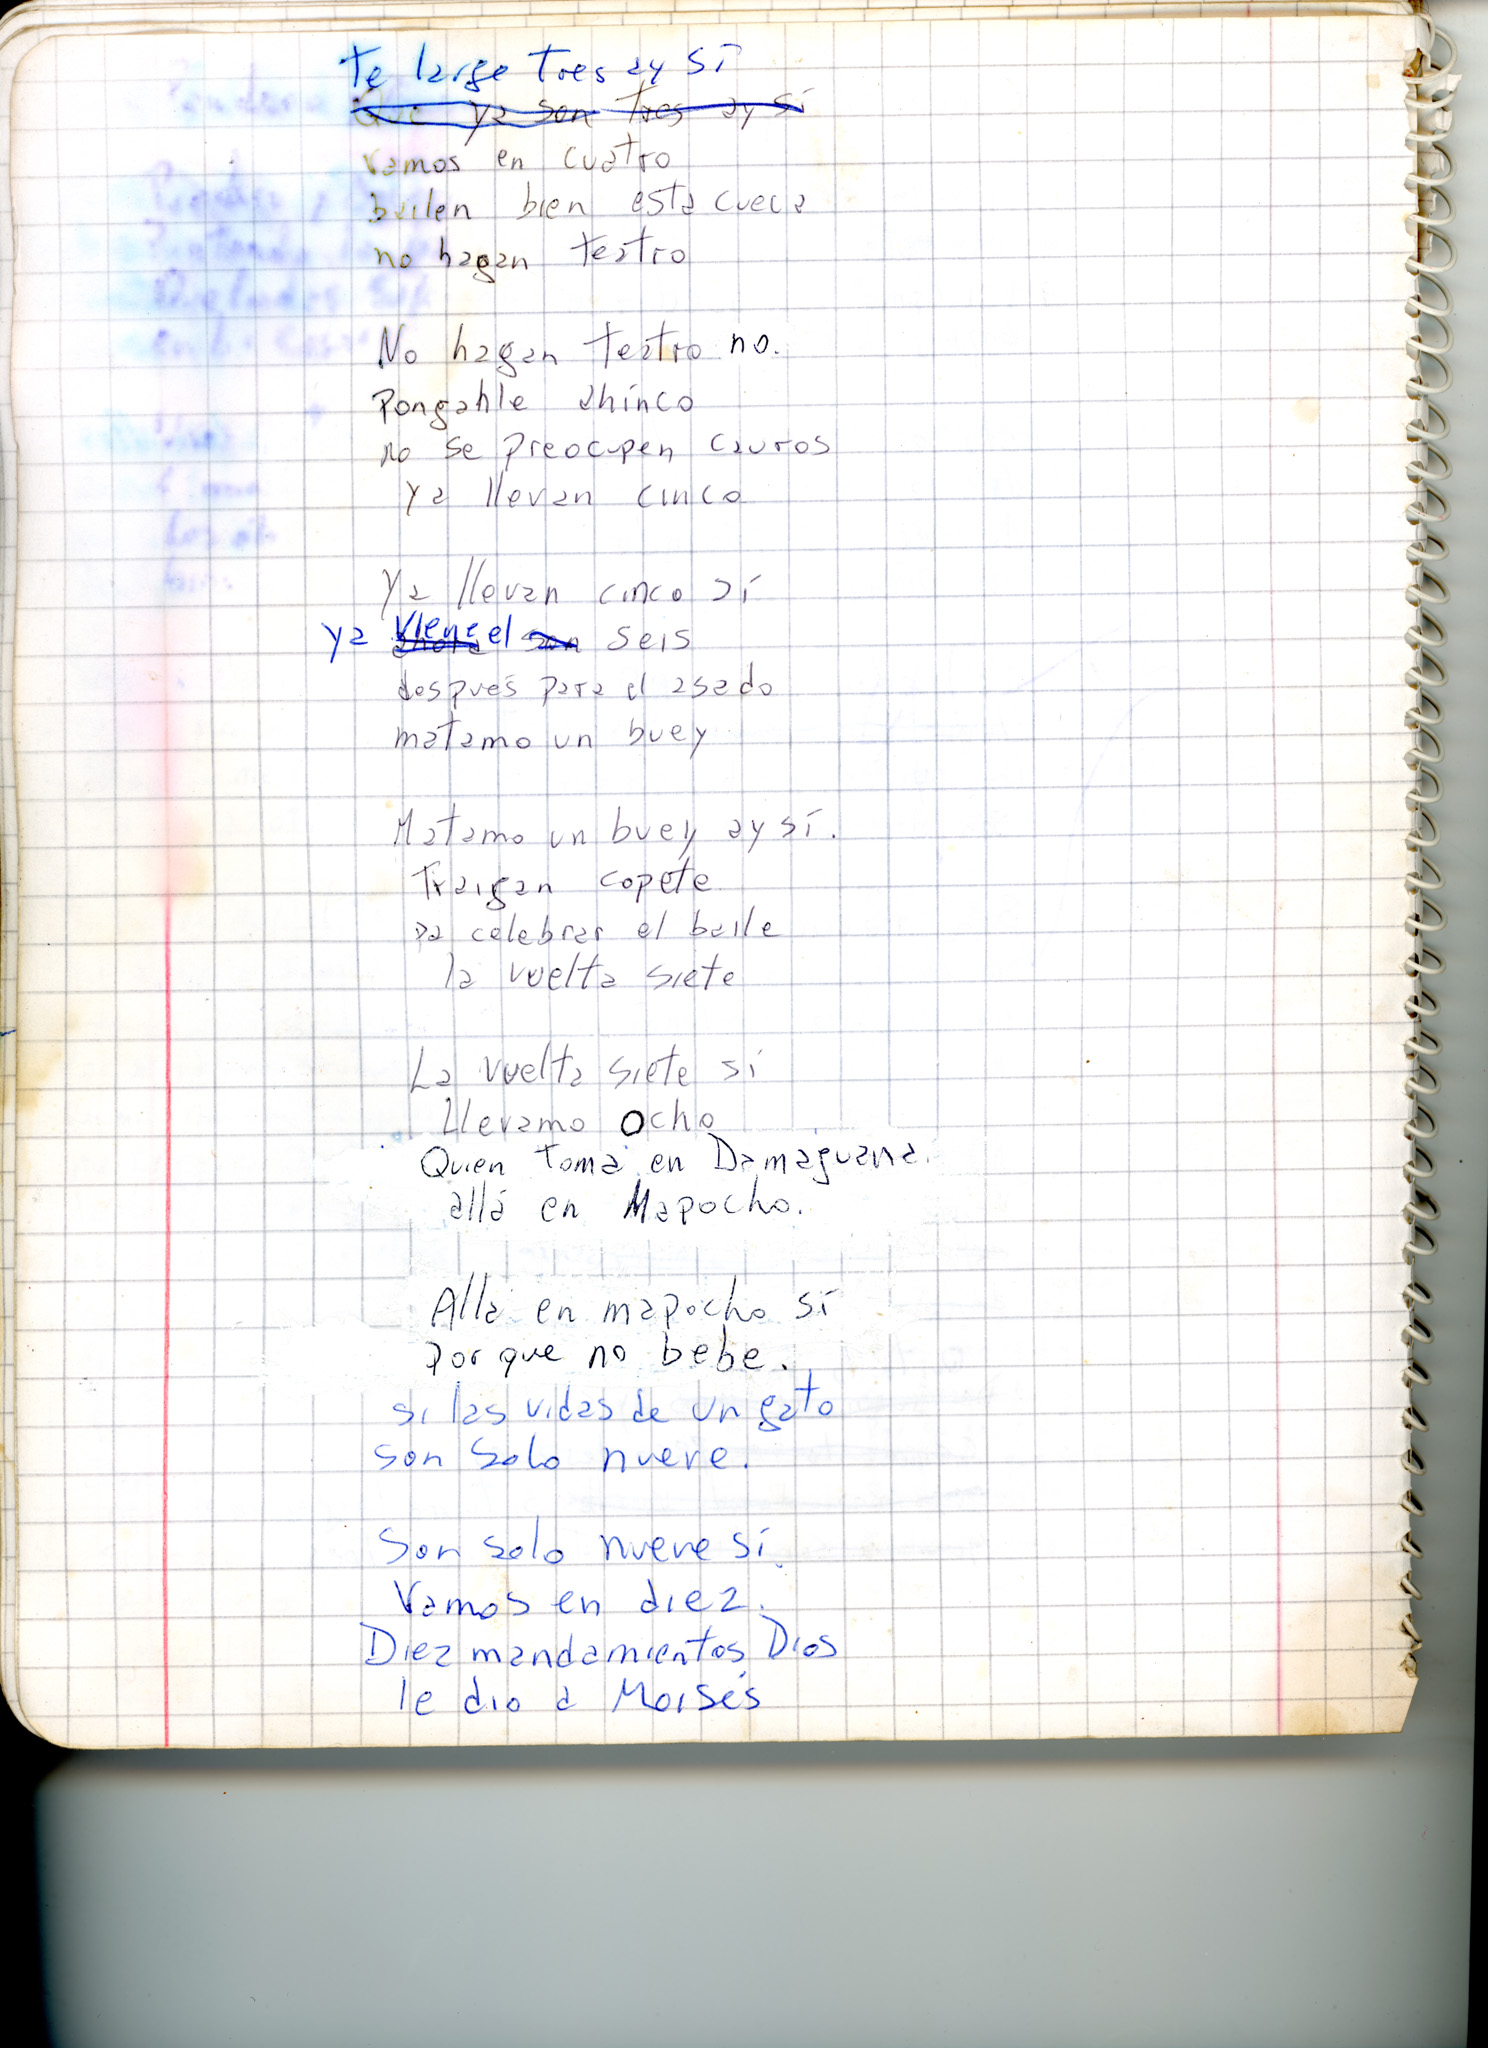 te large tres ay sí
Que ya son tres ay sí
vamos en cuatro
bailen bien esta cueca
no hagan teatro
No hagan teatro no.
Pongahle ahínco
no se preocupen cauros
ya llevan cinco
Ya llevan cinco sí
ya viene el son seis
después para el asado
matamo un buey
Matamo un buey ay sí.
Traigan copete
pa celebrar el baile
la vuelta siete
La vuelta siete sí
Llevamo ocho
Quien toma en Damaguana.
allá en Mapocho.
Allá en mapocho sí
Por que no bebe.
si las vidas de un gato
son solo nueve.
Son solo nueve sí.
Vamos en diez.
Diez mandamientos Dios
le dio a Moisés